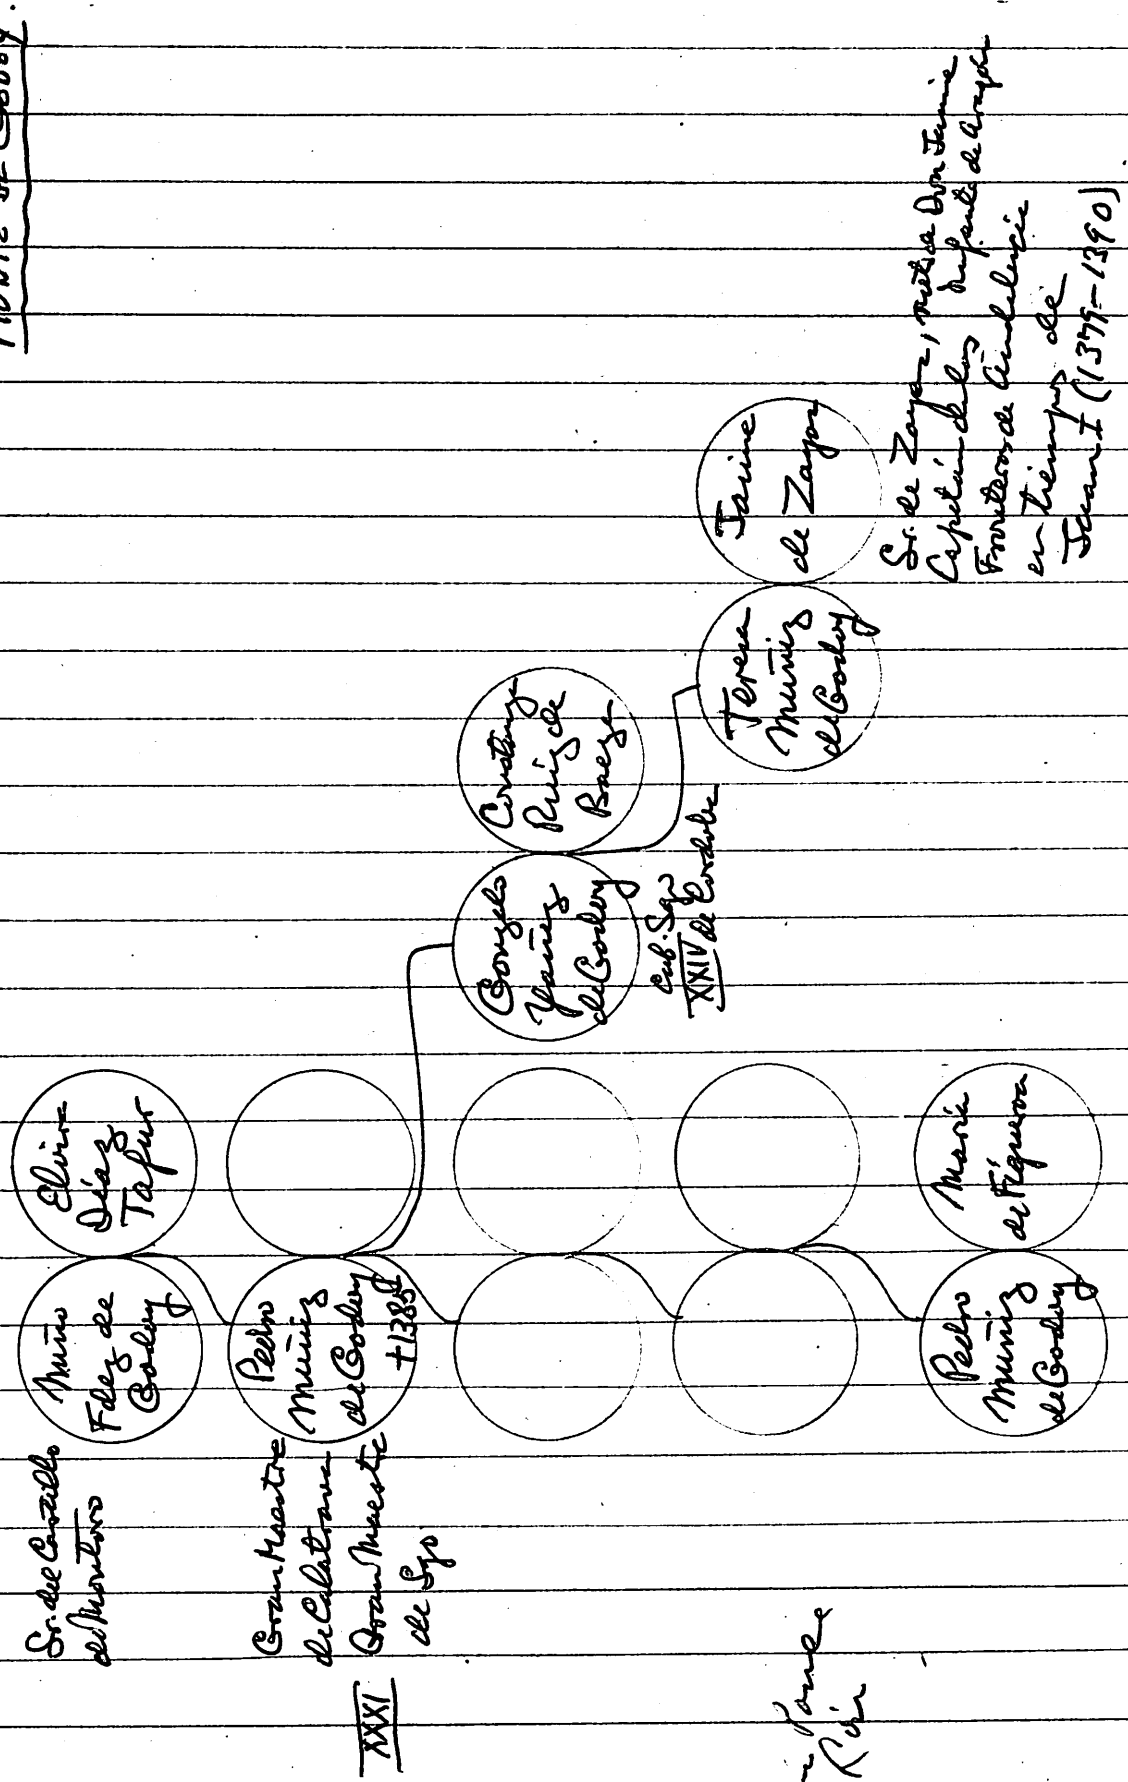 MUÑIZ DE GODOY.
Sr. del Castillo
de Montoro
Muño
Fdez de
Godoy
Elvira
Díaz
Tafur
XXXI
Gran Maestre
de Calatrava
Gran Maestre
de Sgo
Pedro
Muñiz
de Godoy
+1385
Gonzalo
Yañez
de Godoy
Cab. Sgo
XXIV de Cordoba
Constanza
Ruiz de
Baeza
Teresa
Muñiz
de Godoy
Jaime
de Zayas
Sr. de Zayas, nieto de Don Jaime
Capitán de los Infante de Aragón
Fronteros de Andalucía
en tiempos de
Juan I (1379-1390)
Pedro
Muñiz
de Godoy
María
de Figueroa